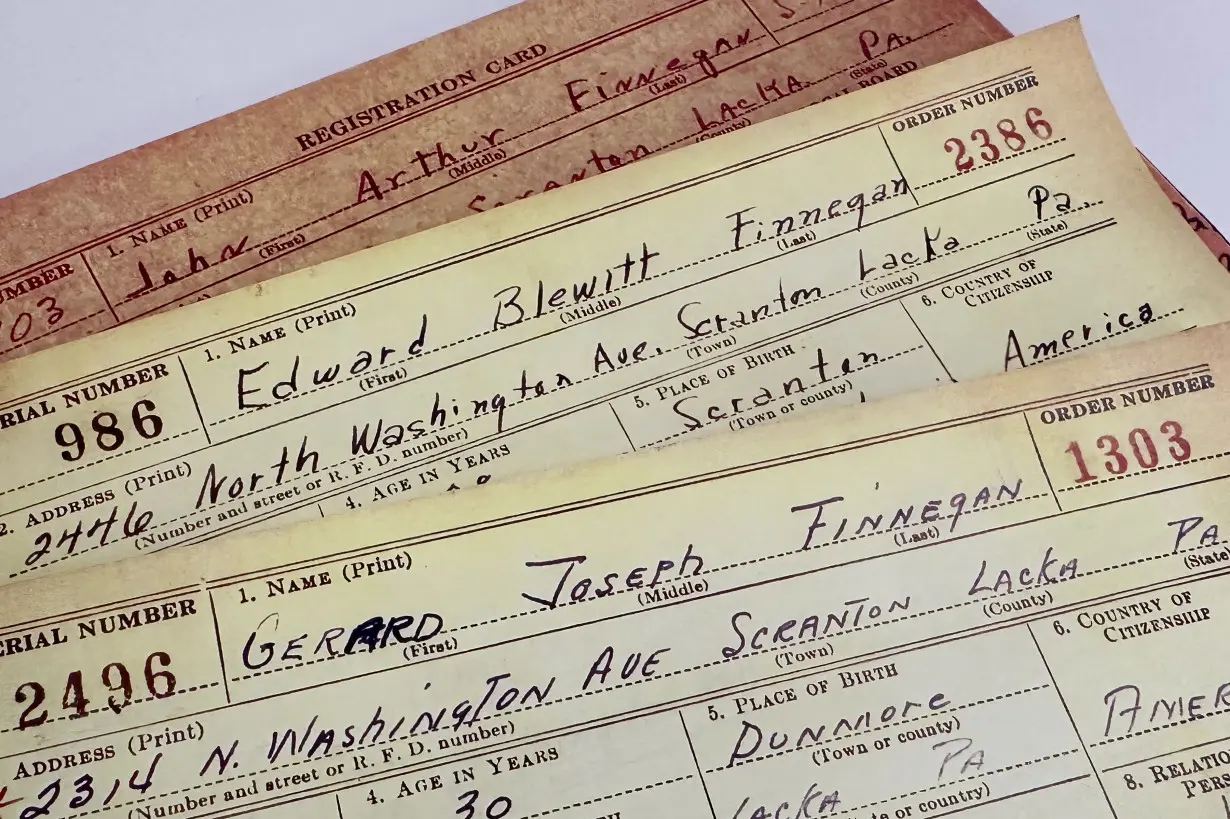 REGISTRATION CARD
1. NAME (Print)
John Arthur Finnegan
(First) (Middle) (Last)
Scranton LACKA. Pa.
(County) (State)
BOARD
UMBER
03
SERIAL NUMBER
986
1. NAME (Print)
Edward Blewitt Finnegan
(First) (Middle) (Last)
ORDER NUMBER
2386
2. ADDRESS (Print)
2446 North Washington Ave. Scranton Lacka Pa.
(Number and street or R. F. D. number) (Town) (County) (State)
4. AGE IN YEARS
5. PLACE OF BIRTH
Scranton
(Town or county)
6. COUNTRY OF
CITIZENSHIP
America
ERIAL NUMBER
2496
1. NAME (Print)
GERARD JOSEPH FINNEGAN
(First) (Middle) (Last)
ORDER NUMBER
1303
ADDRESS (Print)
2314 N. WASHINGTON AVE SCRANTON LACKA PA
(Number and street or R. F. D. number) (Town) (County) (State
4. AGE IN YEARS
30
5. PLACE OF BIRTH
DUNMORE
(Town or county)
LACKA PA
or country)
6. COUNTRY OF
CITIZENSHIP
AMER
8. RELATIO
PERS